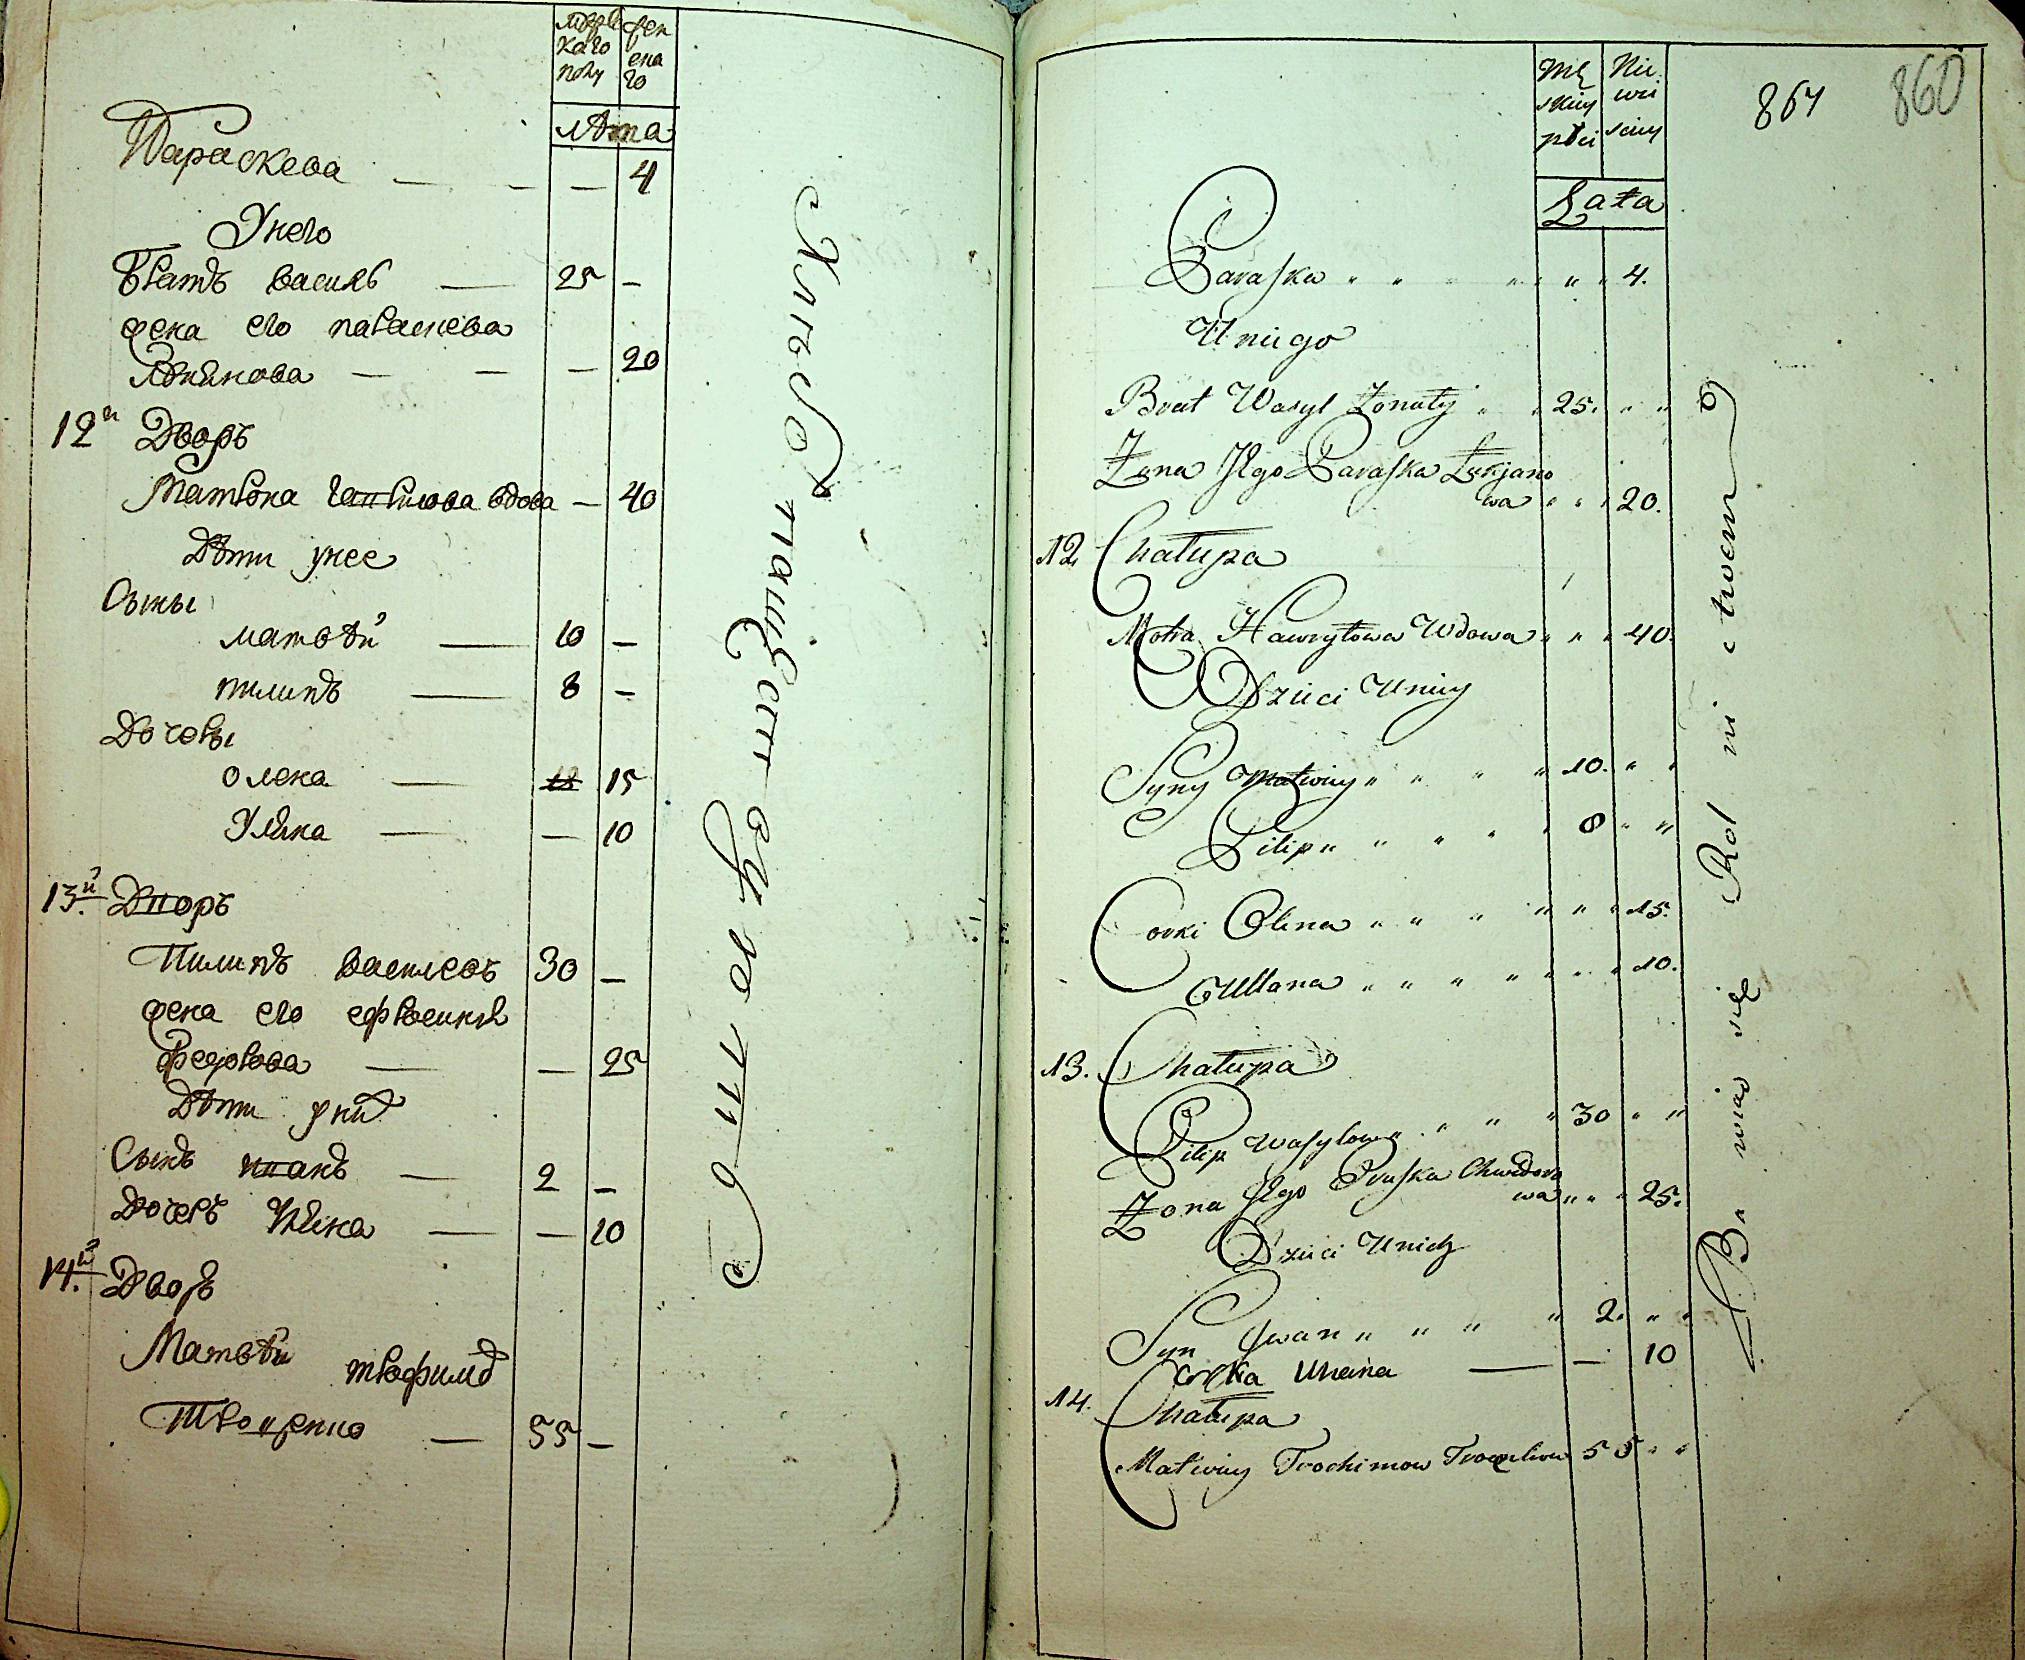 мужескаго полу
женскаго
лѣта
Параскева — — — 4
У него
братъ василь — 25 —
жена его параскева
Лукянова — — — 20
12й Дворъ
Матрона гаврилова вдова — 40
Дѣти у нее
Сыны
матвѣй — 10 —
пилипъ — 8 —
Дочеры
олена — 15
Уляна — — 10
13.й Дворъ
Пилипъ василевъ 30 —
жена его ефросиния
федорова — — 25
Дѣти у них
Сынъ иванъ — 2 —
Дочеръ Уляна — — 10
14.й Дворъ
Матвѣй трофимов
Троценко — 55 —
Хлебопашествуют
Męskiey płci
Niewieściey
Łata
864
860
Paraska " " " " " " 4.
U niego
Brat Wasyl Żonaty " " 25. " "
Żona Jego Paraska Łukjano
wa " " " 20.
12. Chałupa
Motra Hawryłowa Wdowa " " " 40.
Dzieci Uniey
Syny Matwiey " " " " 10. " "
Pilip " " " " " 8 " "
Corki Olena " " " " " " 15.
Ullana " " " " " " " 10.
13. Chałupa
Pilip Wasylow " " " " 30 " "
Żona Jego Pruska Chwedoro
wa " " " 25.
Dzieci Unich
Syn Jwan " " " " 2. " "
corka Uliana — — 10
14. Chałupa
Matwiey Trochimow 55 " "
Bawiao się Rolnictwem